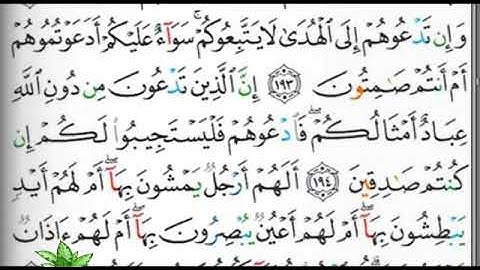 وَإِن تَدۡعُوهُمۡ إِلَى ٱلۡهُدَىٰ لَا يَتَّبِعُوكُمۡۚ سَوَآءٌ عَلَيۡكُمۡ أَدَعَوۡتُمُوهُمۡ
أَمۡ أَنتُمۡ صَٰمِتُونَ ١٩٣ إِنَّ ٱلَّذِينَ تَدۡعُونَ مِن دُونِ ٱللَّهِ
عِبَادٌ أَمۡثَالُكُمۡۖ فَٱدۡعُوهُمۡ فَلۡيَسۡتَجِيبُواْ لَكُمۡ إِن
كُنتُمۡ صَٰدِقِينَ ١٩٤ أَلَهُمۡ أَرۡجُلٞ يَمۡشُونَ بِهَآۖ أَمۡ لَهُمۡ أَيۡدٖ
يَبۡطِشُونَ بِهَآۖ أَمۡ لَهُمۡ أَعۡيُنٞ يُبۡصِرُونَ بِهَآۖ أَمۡ لَهُمۡ ءَاذَانٞ